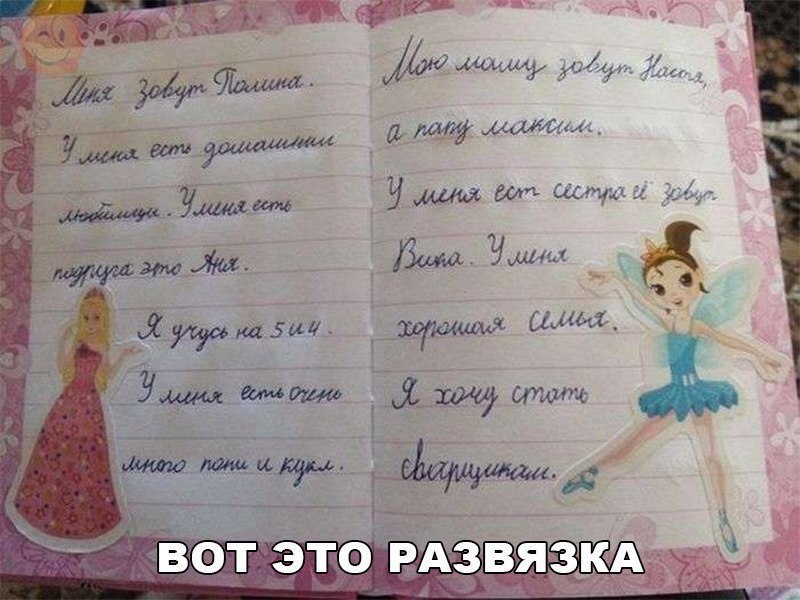 Меня зовут Полина.
У меня есть домашнии
любимцы. У меня есть
подруга это Аня.
Я учусь на 5 и 4.
У меня есть очень
много пони и кукл.
Мою маму зовут Настя,
а папу максим.
У меня ест сестра её зовут
Вика. У меня
хорошая семья.
Я хочу стать
сварщикам.
ВОТ ЭТО РАЗВЯЗКА